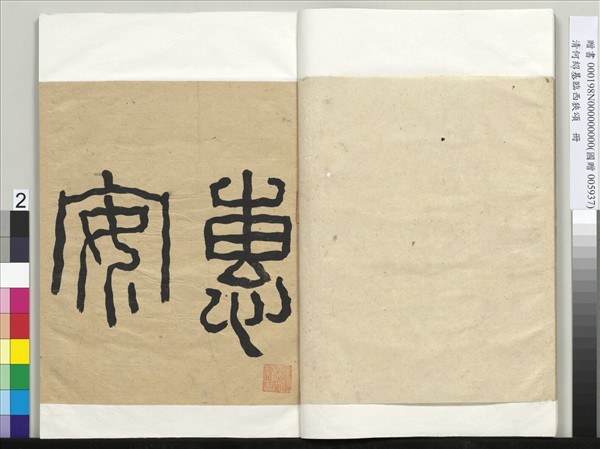 惠
安
贈書 000198N000000000(國贈 005937)
清何紹基臨西狹頌 冊
2